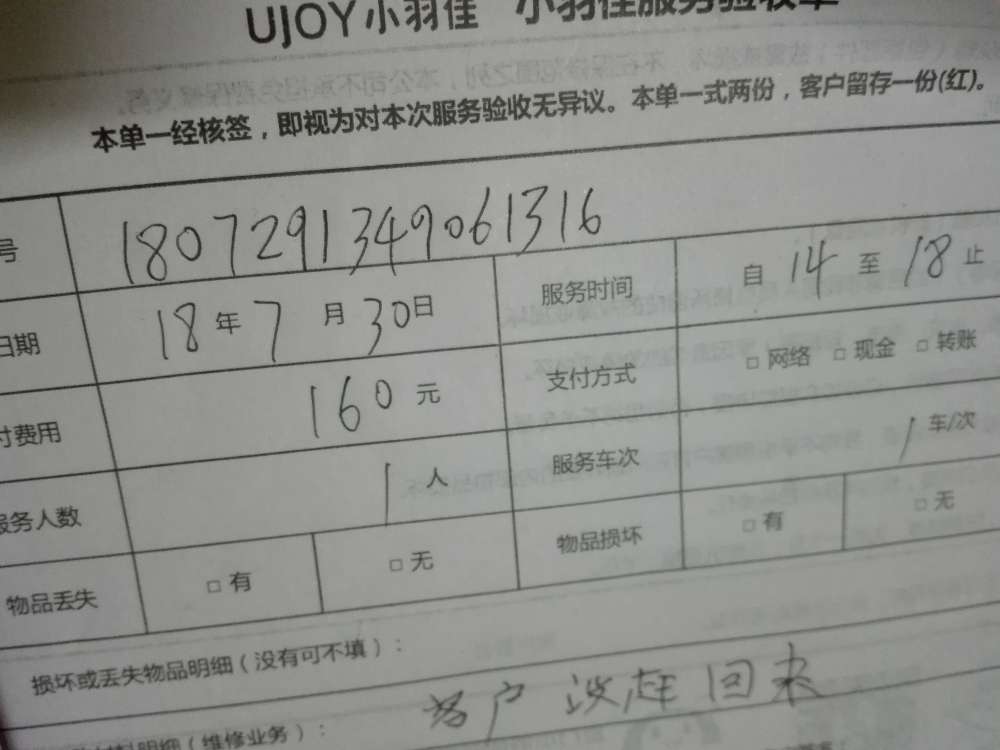 UJOY小羽佳 小羽佳服务验收单
本单一经核签，即视为对本次服务验收无异议。本单一式两份，客户留存一份(红)。
号 1807291349061316
日期 18年7月30日 服务时间 自14至18止
付费用 160元 支付方式 □网络 □现金 □转账
服务人数 1人 服务车次 1车/次
物品丢失 □有 □无 物品损坏 □有 □无
损坏或丢失物品明细（没有可不填）：
明细（维修业务）： 客户没赶回来